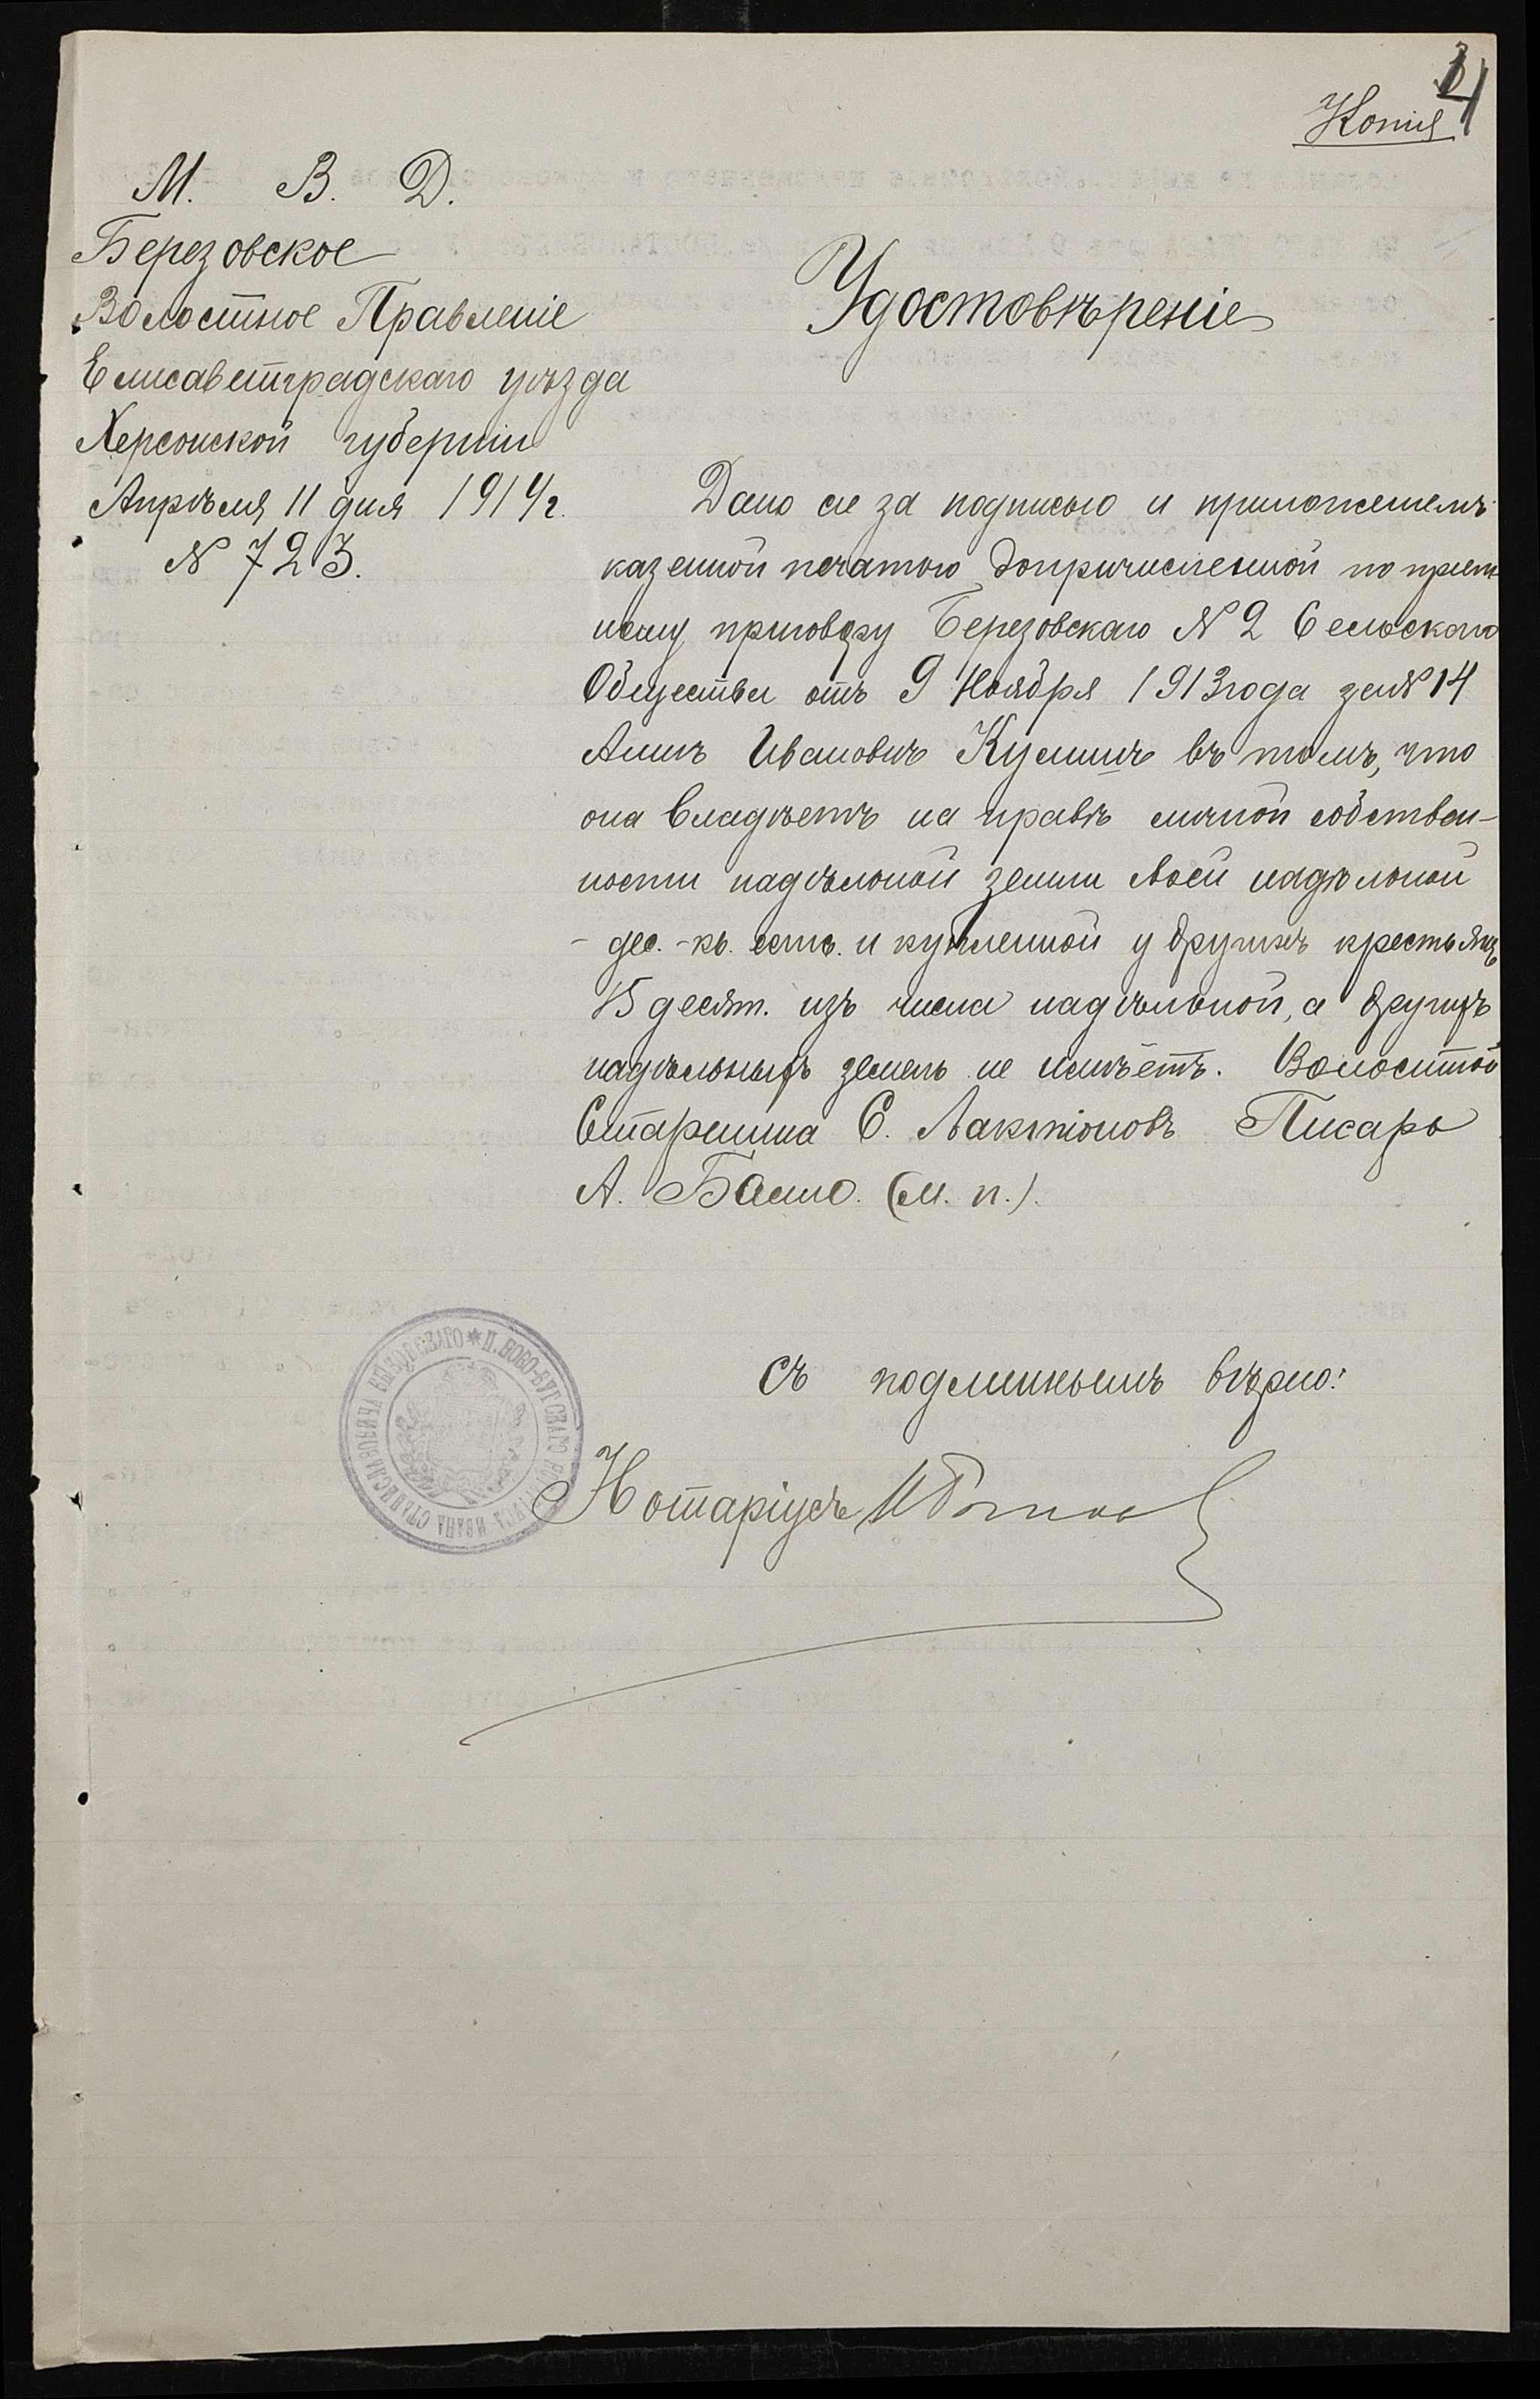 4
Копия
М. В. Д.
Березовское
Волостное Правленіе
Елисаветградскаго уѣзда
Херсонской губерніи
Апрѣля 11 дня 1914 г.
N 723.
Удостовѣреніе
Дано сіе за подписью и приложеніемъ
казенной печатью допричисленной по пріем
ному приговору Березовскаго N 2 Сельскаго
Общества отъ 9 Ноября 1913 года за N 14
Аннѣ Ивановнѣ въ томъ, что
она владѣетъ на правѣ личной собствен-
ности надѣльной земли своей надѣльной
- дес. - кв. саж. и купленной у другихъ крестьянъ
15 десят. изъ числа надѣльной, а другихъ
надѣльныхъ земель не имѣетъ. Волостной
Старшина С. Лактіоновъ Писарь
А. (М. п.).
Съ подлиннымъ вѣрно:
Нотаріусъ